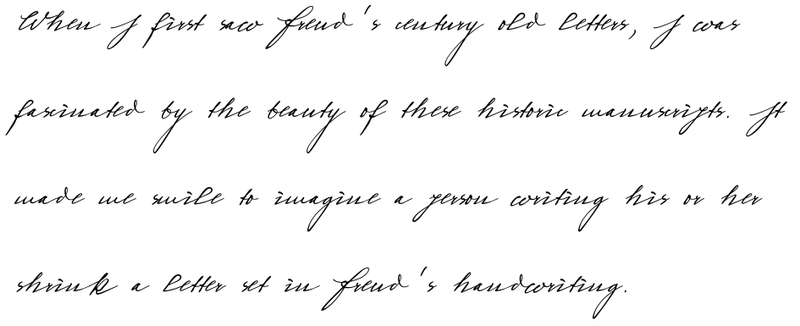 When I first saw Freud's century old letters, I was
fascinated by the beauty of these historic manuscripts. It
made me smile to imagine a person writing his or her
shrink a letter set in Freud's handwriting.